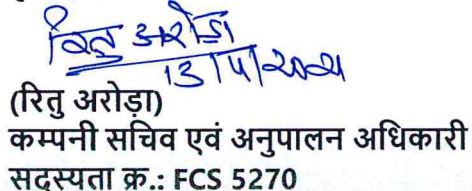 रितु अरोड़ा
(रितु अरोड़ा)
कम्पनी सचिव एवं अनुपालन अधिकारी
सदस्यता क्र.: FCS 5270